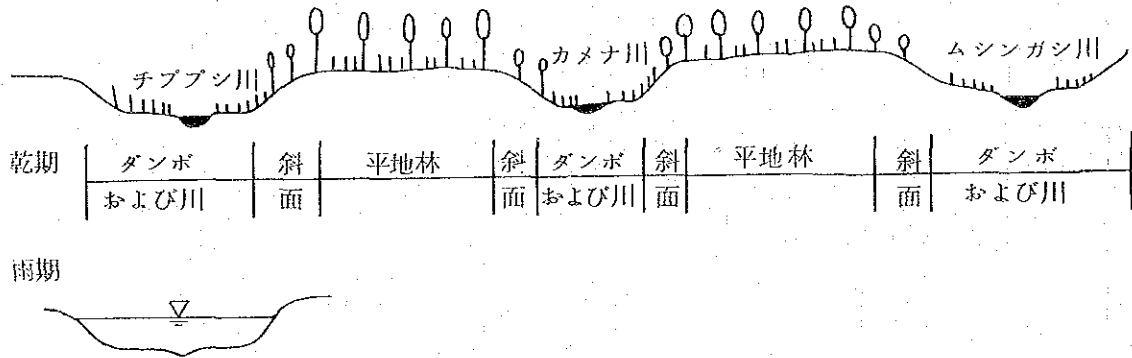 チブブシ川 カメナ川 ムシンガシ川
乾期 ダンボおよび川 斜面 平地林 斜面 ダンボおよび川 斜面 平地林 斜面 ダンボおよび川
雨期